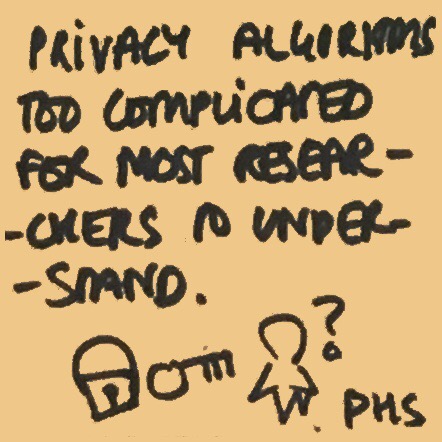 PRIVACY ALGORITHMS
TOO COMPLICATED
FOR MOST RESEAR-
-CHERS TO UNDER-
-STAND.
?
PHS